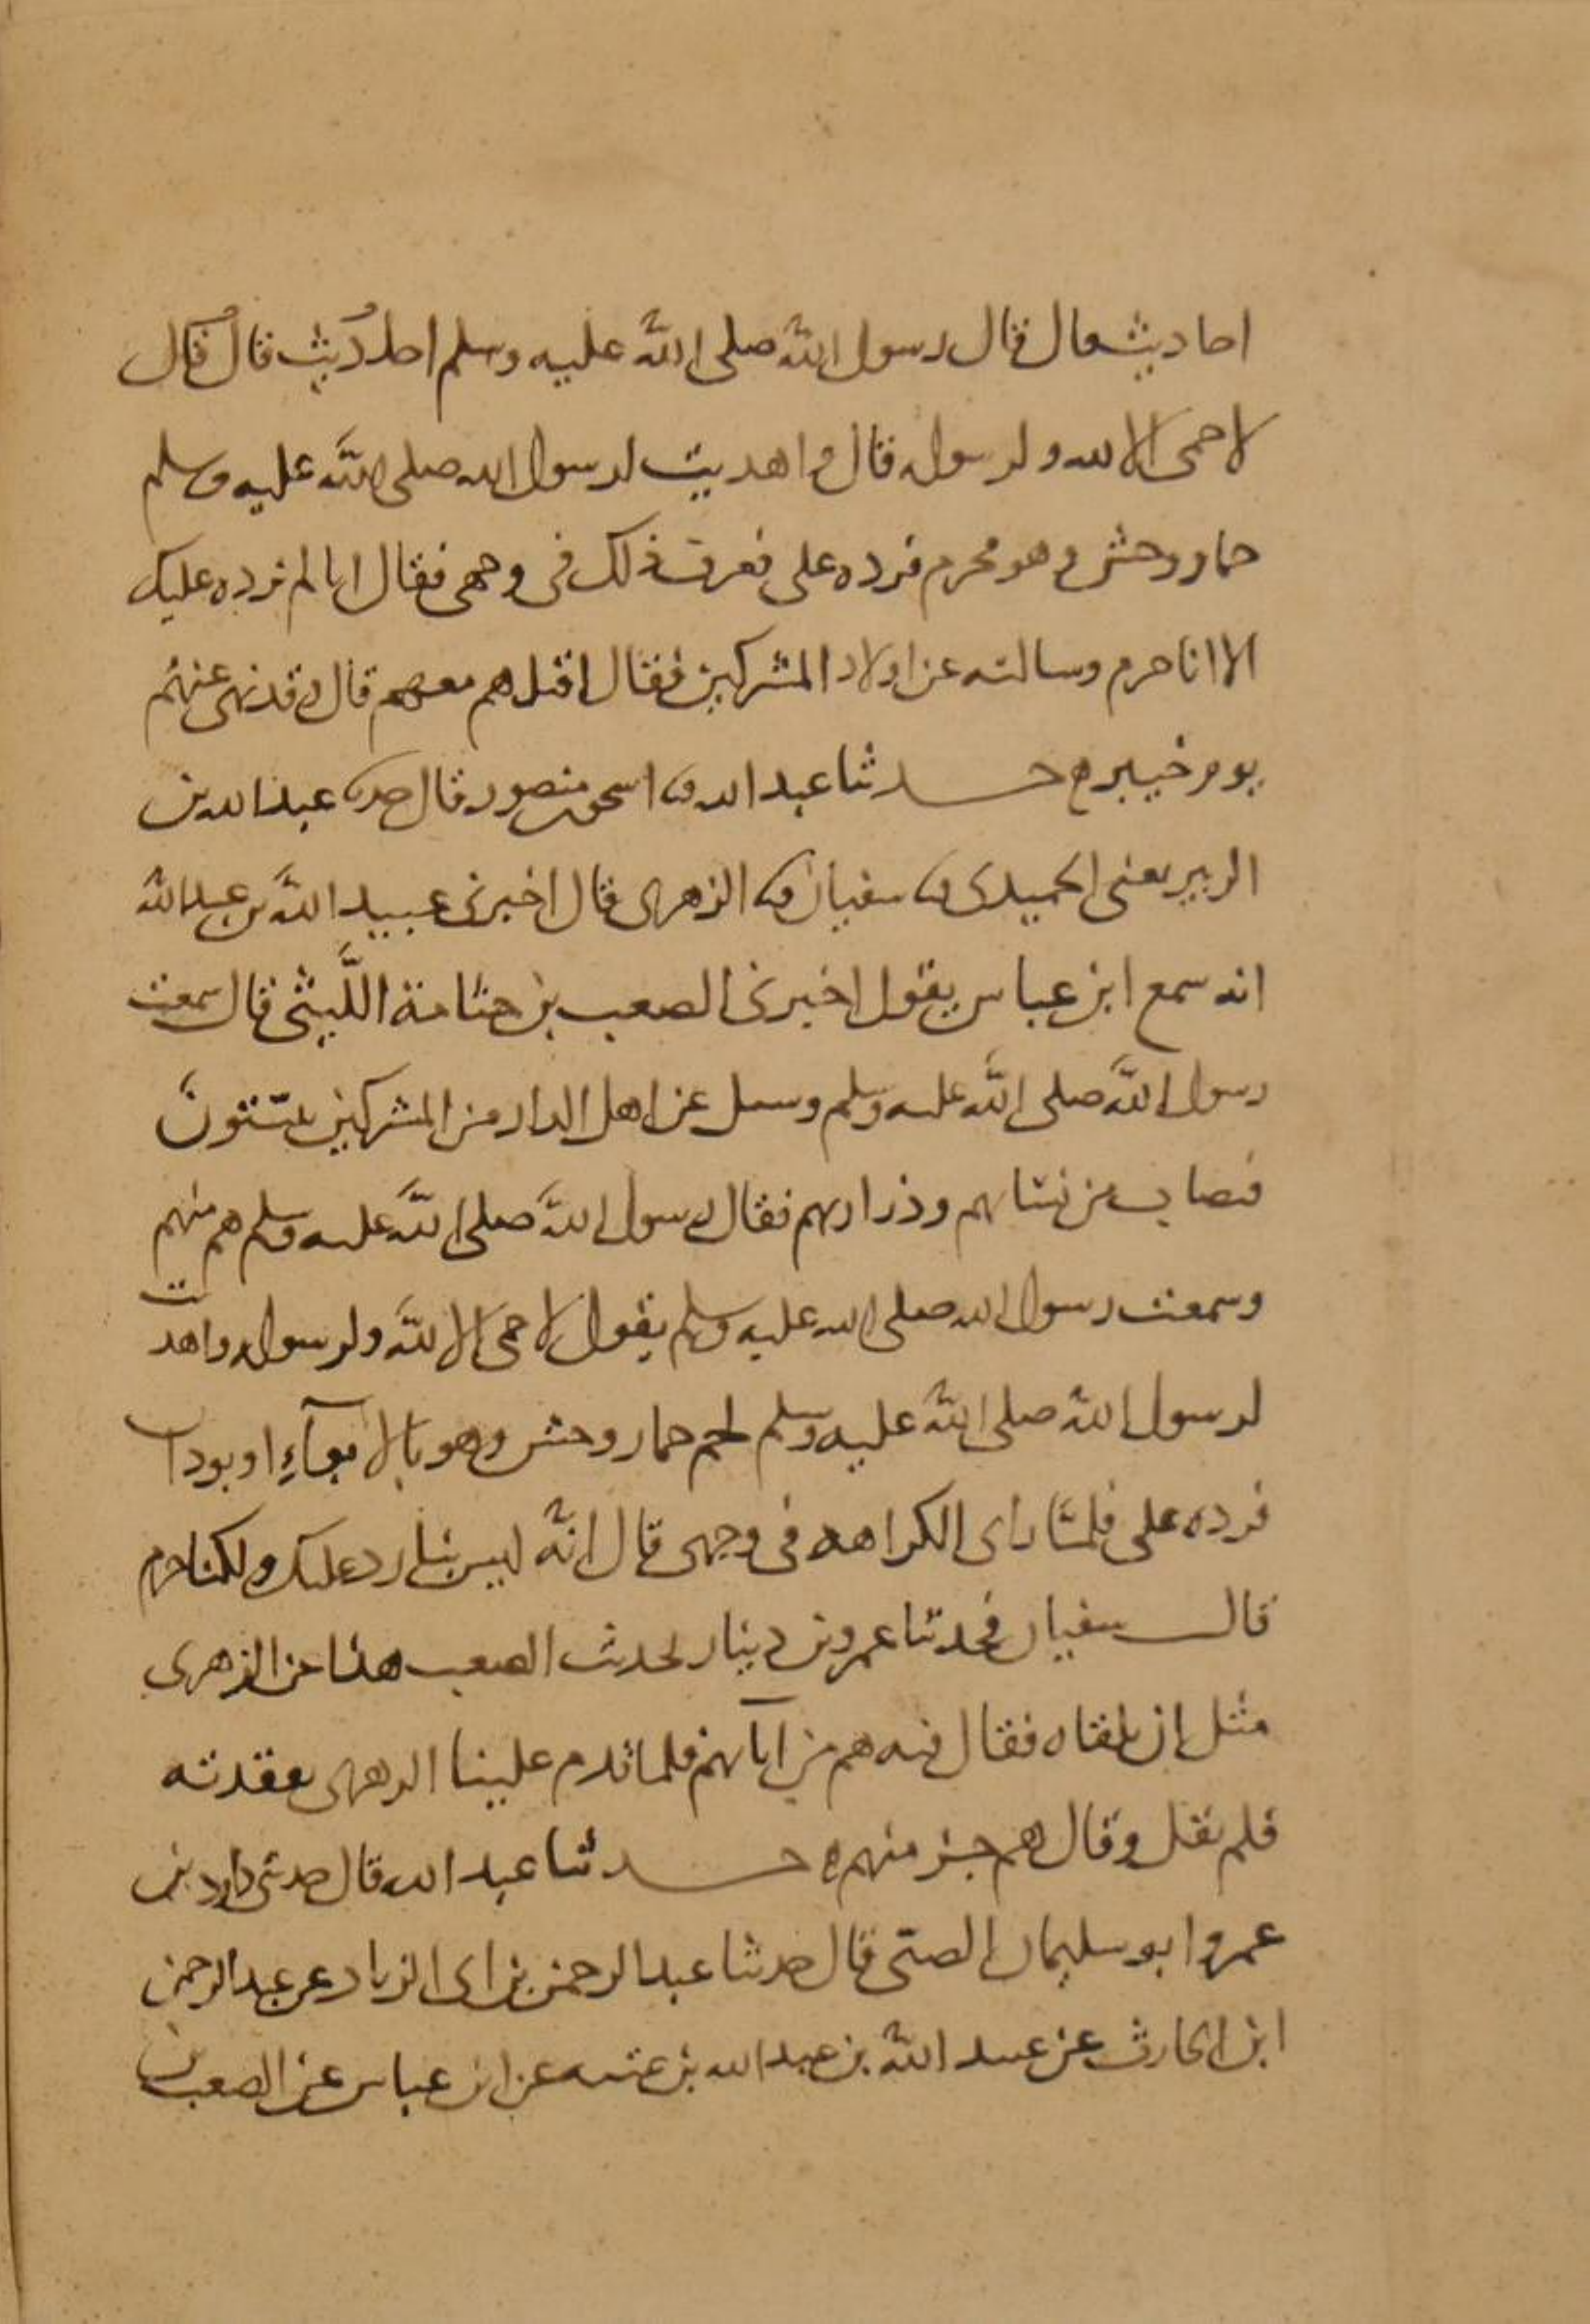 احاديث قال قال رسول الله صلى الله عليه وسلم احاديث قال قال
لا حمى الا لله ولرسوله قال واهديت لرسول الله صلى الله عليه وسلم
حمار وحش وهو محرم فرده على فعرف ذلك في وجهى فقال انا لم نرده عليك
الا انا حرم وسالته عن اولاد المشركين فقال اقتلهم معهم قال وقد نهى عنهم
يوم خيبر حدثنا عبد الله نا اسحق منصور قال حدثنا عبد الله بن
الزبير يعنى الحميدى نا سفيان نا الزهرى قال اخبرنى عبيد الله بن عبد الله
انه سمع ابن عباس يقول اخبرنى الصعب بن جثامة الليثى قال سمعت
رسول الله صلى الله عليه وسلم وسئل عن اهل الدار من المشركين يبيتون
فيصاب من نسائهم وذراريهم فقال رسول الله صلى الله عليه وسلم هم منهم
وسمعت رسول الله صلى الله عليه وسلم يقول لا حمى الا لله ولرسوله واهديت
لرسول الله صلى الله عليه وسلم لحم حمار وحش وهو بالابوآءِ او بودان
فرده على فلمّا راى الكراهه فى وجهى قال انّه ليس بنا رد عليك ولكنا حرم
قال سفيان فحدثنا عمرو بن دينار بحديث الصعب هذا عن الزهرى
مثل ان يلقاه فقال فيه هم من آبائهم فلما قدم علينا الزهرى تفقدته
فلم يقل وقال هم منهم حدثنا عبد الله قال حدثنى داود بن
عمرو ابو سليمان الضبّى قال حدثنا عبد الرحمن بن ابى الزناد عن عبد الرحمن
ابن الحارث عن عبيد الله بن عبد الله بن عتبه عن ابن عباس عن الصعب بن